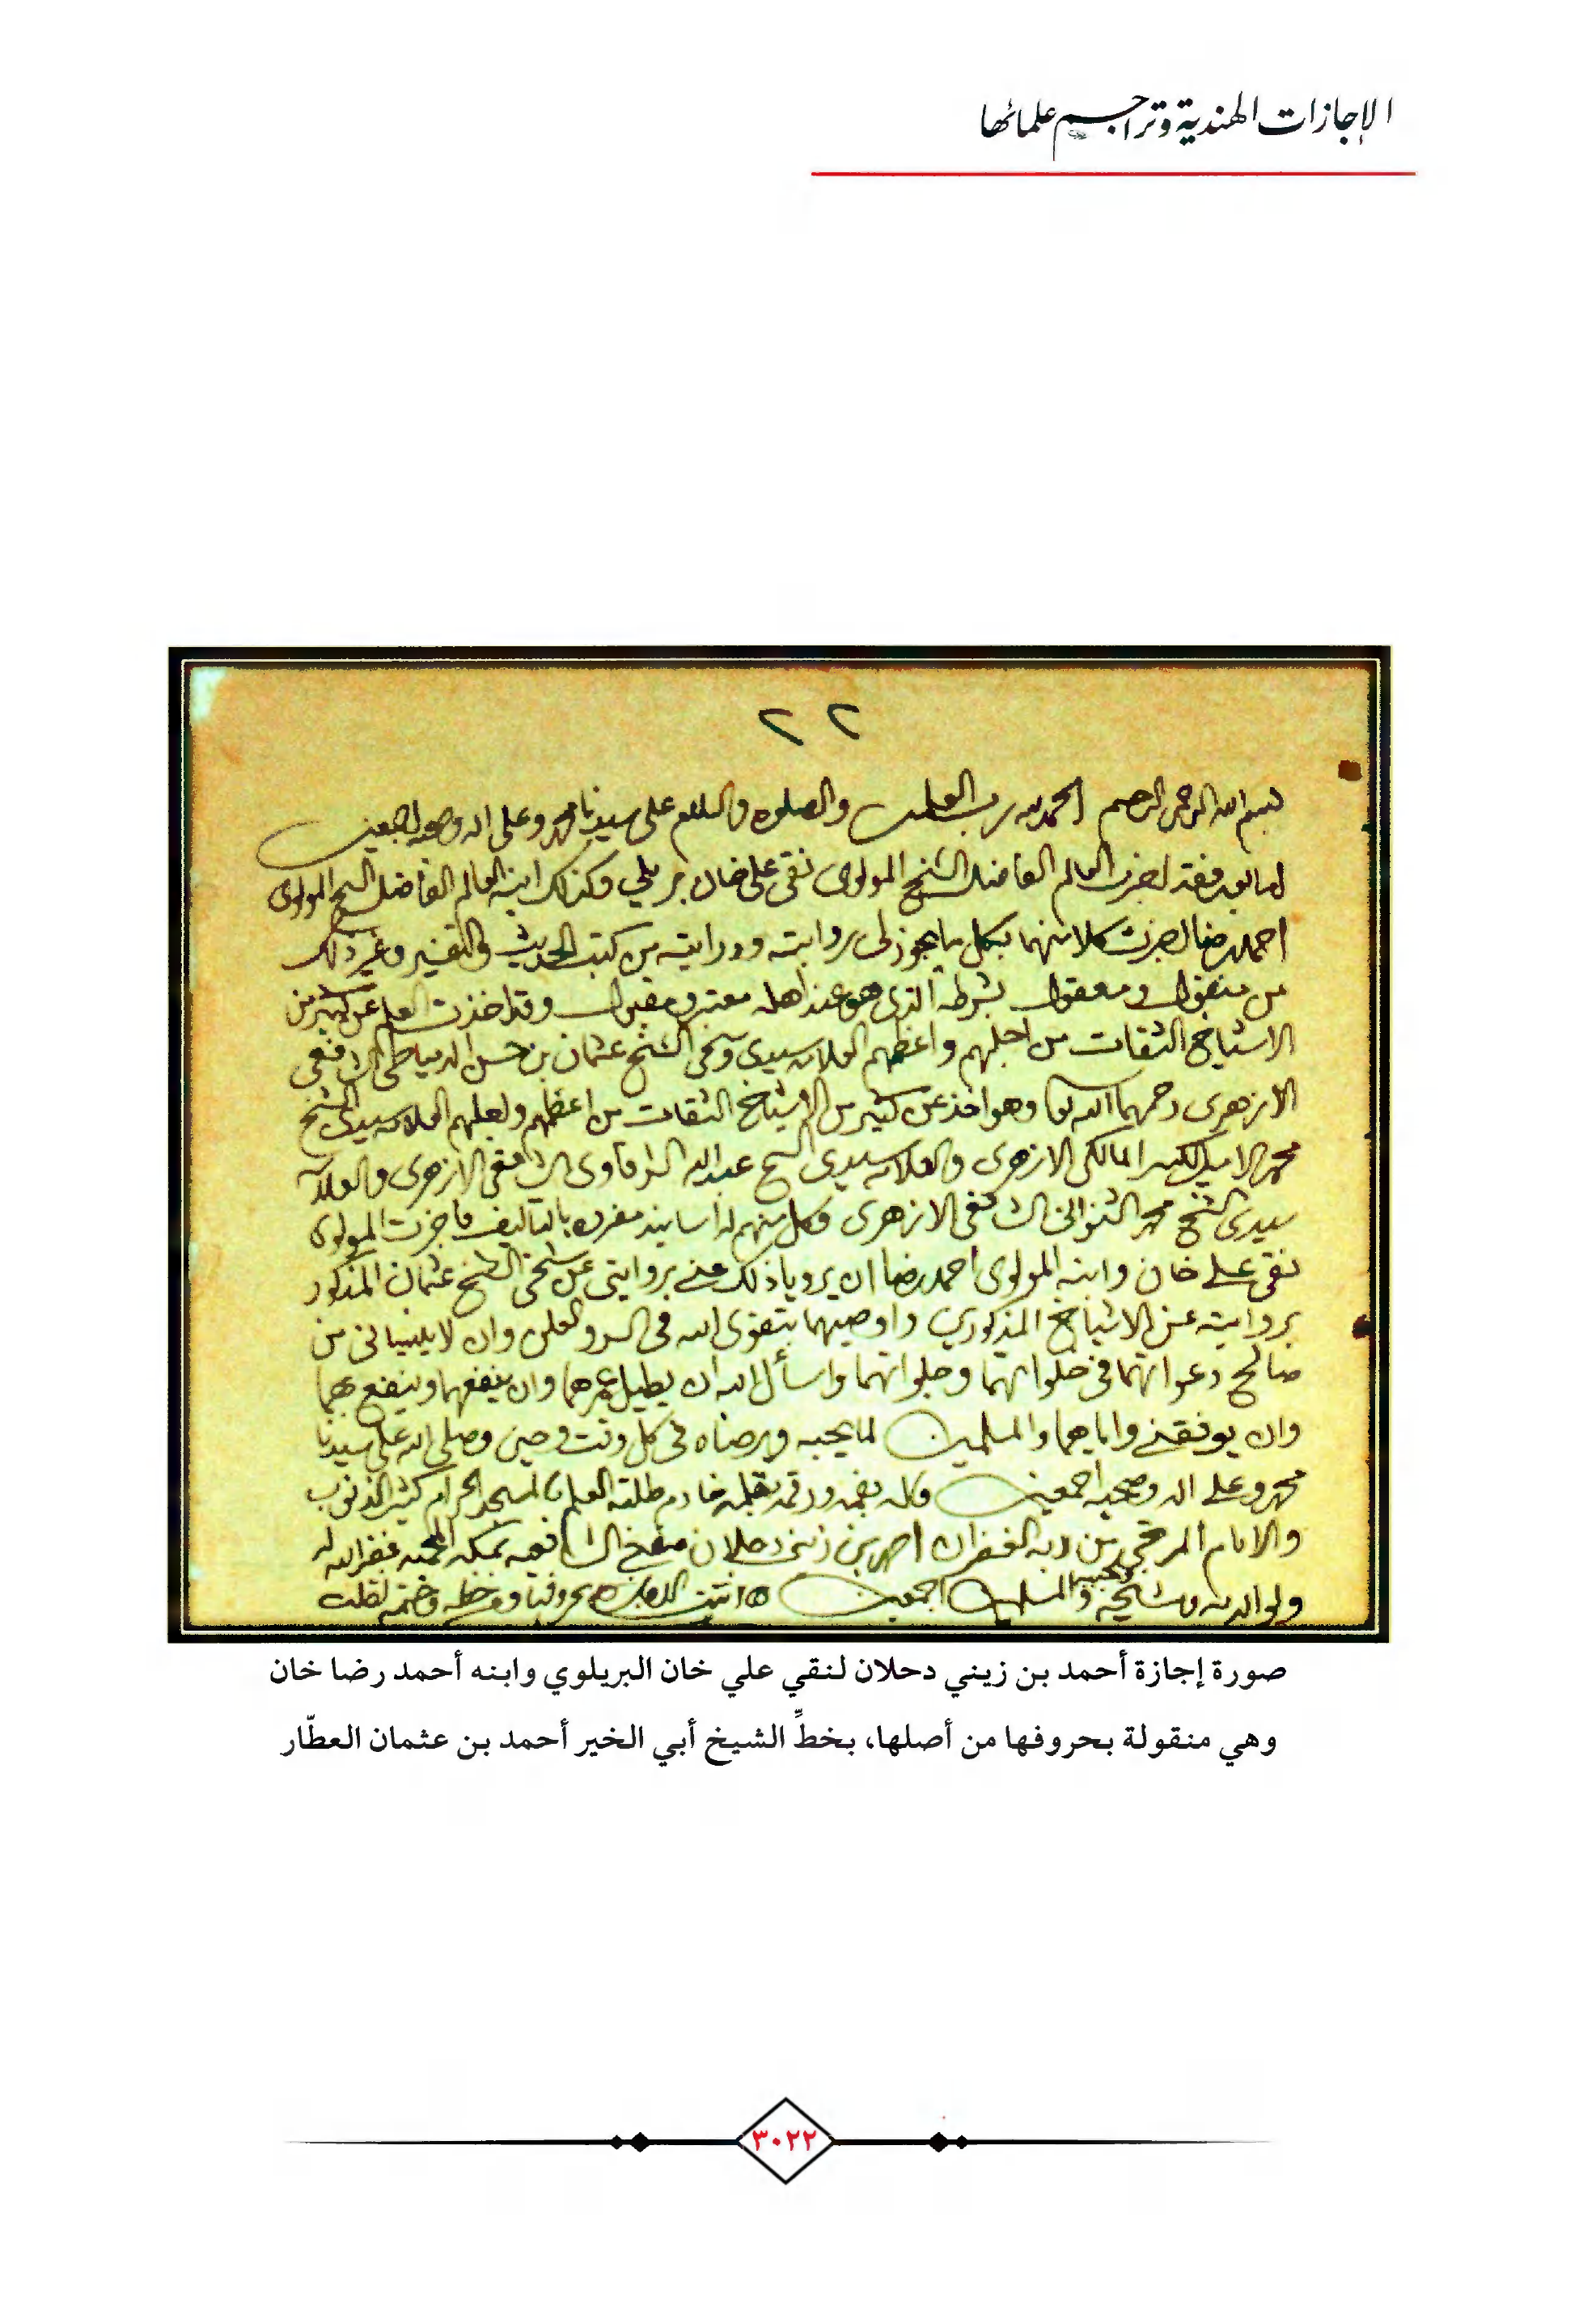 الإجازات الهندية وتراجم علمائها
٢٢
بسم الله الرحمن الرحيم الحمد لله رب العلمين والصلوة والسلام على سيدنا محمد وعلى اله وصحبه اجمعين
اما بعد فقد اجزت العالم الفاضل الشيخ المولوى نقى على خان بريلي وكذلك ابنه العالم الفاضل الشيخ المولوى
احمد رضا اجزت كلا منهما بكل ما يجوز لى روايته ودرايته من كتب الحديث والتفسير وغير ذلك
من منقول ومعقول بشرطه الذى هو عند اهله معتبر ومقبول وقد اخذت العلم عن كثير من
الاشياخ الثقات من اجلهم واعظمهم العلامه سيدى وشيخى الشيخ عثمان بن حسن الدمياطى الشافعى
الازهرى رحمهما الله تعا وهو اخذ عن كثير من الاشياخ الثقات من اعظمهم واجلهم العلامه سيدى الشيخ
محمد الامير الكبير المالكى الازهرى والعلامه سيدى الشيخ عبد الله الشرقاوى الشافعى الازهرى والعلامه
سيدى الشيخ محمد الشنوانى الشافعى الازهرى وكل منهم له اسانيد مفرده بالتاليف فاجزت المولوى
نقى على خان وابنه المولوى احمد رضا ان يرويا ذلك عنى بروايتى عن شيخى الشيخ عثمان المذكور
بروايته عن الاشياخ المذكورين واوصيهما بتقوى الله فى السر والعلن وان لا ينسيانى من
صالح دعواتهما فى خلواتهما وجلواتهما واسأل الله ان يطيل عمرهما وان ينفعهما وينفع بهما
وان يوفقنى واياهما والمسلمين لما يحبه ويرضاه فى كل وقت وحين وصلى الله على سيدنا
محمد وعلى اله وصحبه اجمعين قاله بفمه ورقمه بقلمه خادم طلبة العلم بالمسجد الحرام كثير الذنوب
والاثام المرتجى من ربه الغفران احمد بن زينى دحلان مفتى الشافعيه بمكه المحميه غفر الله له
ولوالديه ومشايخه ومحبيه والمسلمين اجمعين انتهت الاجازه بحروفها ومن خطه وختمه نقلت
صورة إجازة أحمد بن زيني دحلان لنقي علي خان البريلوي وابنه أحمد رضا خان
وهي منقولة بحروفها من أصلها، بخطِّ الشيخ أبي الخير أحمد بن عثمان العطّار
٣٠٢٢